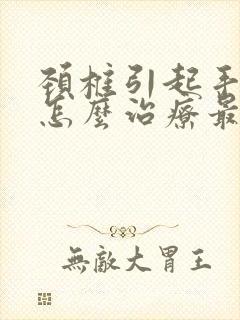 頸椎引起手
怎麼治療最
無敵大胃王